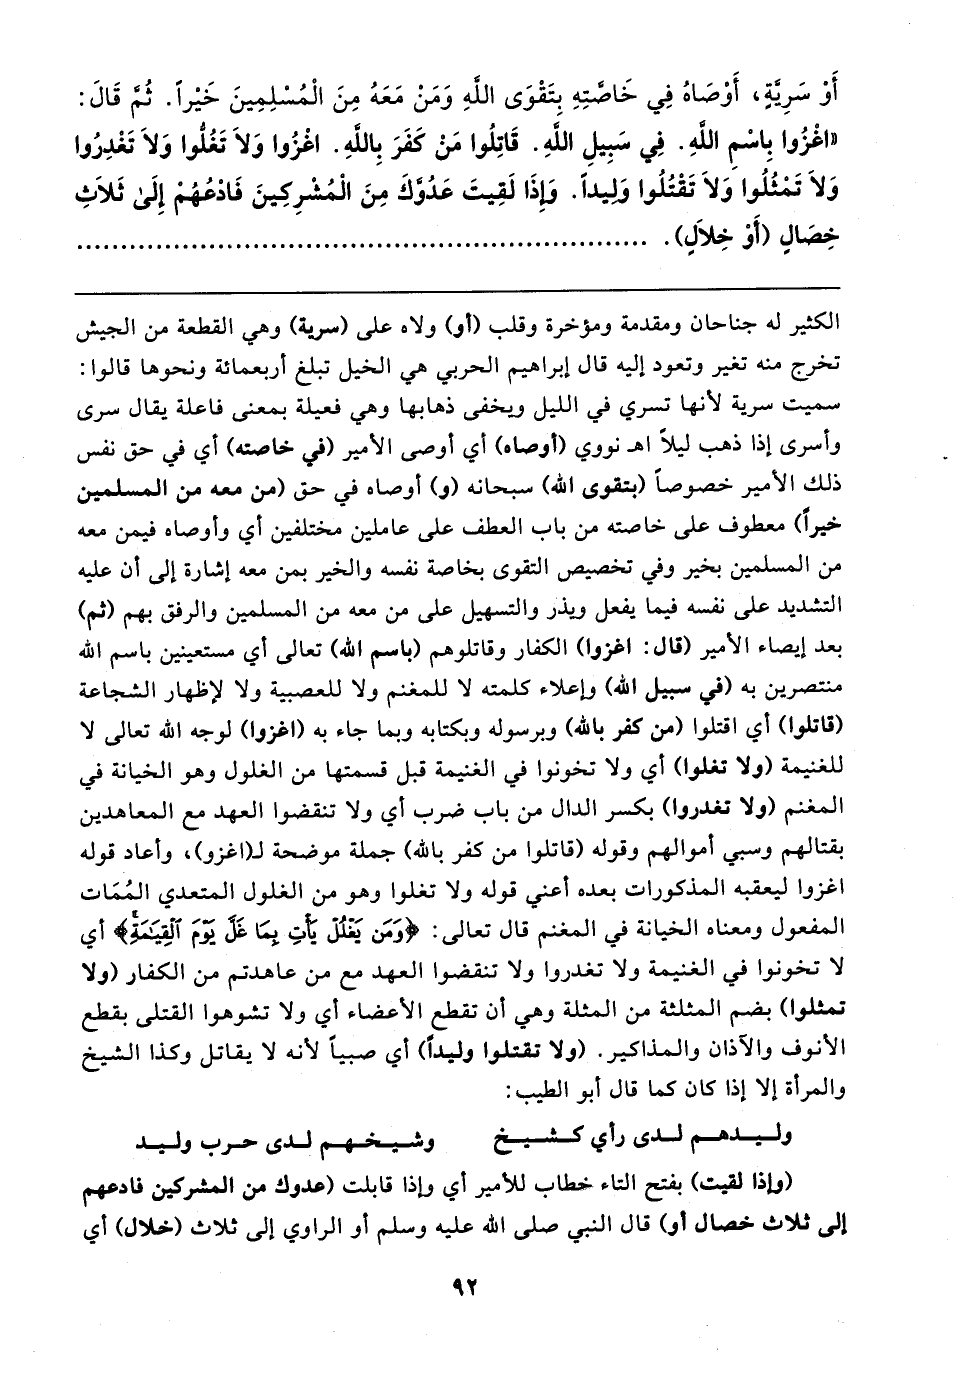 أَوْ سَرِيَّةٍ، أَوْصَاهُ فِي خَاصَّتِهِ بِتَقْوَى اللَّهِ وَمَنْ مَعَهُ مِنَ الْمُسْلِمِينَ خَيْراً. ثُمَّ قَالَ:
«اغْزُوا بِاسْمِ اللَّهِ. فِي سَبِيلِ اللَّهِ. قَاتِلُوا مَنْ كَفَرَ بِاللَّهِ. اغْزُوا وَلاَ تَغُلُّوا وَلاَ تَغْدِرُوا
وَلاَ تَمْثُلُوا وَلاَ تَقْتُلُوا وَلِيداً. وَإِذَا لَقِيتَ عَدُوَّكَ مِنَ الْمُشْرِكِينَ فَادْعُهُمْ إِلَىٰ ثَلاَثِ
خِصَالٍ (أَوْ خِلاَلٍ). ......................................................................
الكثير له جناحان ومقدمة ومؤخرة وقلب (أو) ولاه على (سرية) وهي القطعة من الجيش
تخرج منه تغير وتعود إليه قال إبراهيم الحربي هي الخيل تبلغ أربعمائة ونحوها قالوا:
سميت سرية لأنها تسري في الليل ويخفى ذهابها وهي فعيلة بمعنى فاعلة يقال سرى
وأسرى إذا ذهب ليلاً اهـ نووي (أوصاه) أي أوصى الأمير (في خاصته) أي في حق نفس
ذلك الأمير خصوصاً (بتقوى الله) سبحانه (و) أوصاه في حق (من معه من المسلمين
خيراً) معطوف على خاصته من باب العطف على عاملين مختلفين أي وأوصاه فيمن معه
من المسلمين بخير وفي تخصيص التقوى بخاصة نفسه والخير بمن معه إشارة إلى أن عليه
التشديد على نفسه فيما يفعل ويذر والتسهيل على من معه من المسلمين والرفق بهم (ثم)
بعد إيصاء الأمير (قال: اغزوا) الكفار وقاتلوهم (باسم الله) تعالى أي مستعينين باسم الله
منتصرين به (في سبيل الله) وإعلاء كلمته لا للمغنم ولا للعصبية ولا لإظهار الشجاعة
(قاتلوا) أي اقتلوا (من كفر بالله) وبرسوله وبكتابه وبما جاء به (اغزوا) لوجه الله تعالى لا
للغنيمة (ولا تغلوا) أي ولا تخونوا في الغنيمة قبل قسمتها من الغلول وهو الخيانة في
المغنم (ولا تغدروا) بكسر الدال من باب ضرب أي ولا تنقضوا العهد مع المعاهدين
بقتالهم وسبي أموالهم وقوله (قاتلوا من كفر بالله) جملة موضحة لـ(اغزو)، وأعاد قوله
اغزوا ليعقبه المذكورات بعده أعني قوله ولا تغلوا وهو من الغلول المتعدي المُمَات
المفعول ومعناه الخيانة في المغنم قال تعالى: ﴿وَمَن يَغْلُلْ يَأْتِ بِمَا غَلَّ يَوْمَ ٱلْقِيَٰمَةِۚ﴾ أي
لا تخونوا في الغنيمة ولا تغدروا ولا تنقضوا العهد مع من عاهدتم من الكفار (ولا
تمثلوا) بضم المثلثة من المثلة وهي أن تقطع الأعضاء أي ولا تشوهوا القتلى بقطع
الأنوف والآذان والمذاكير. (ولا تقتلوا وليداً) أي صبياً لأنه لا يقاتل وكذا الشيخ
والمرأة إلا إذا كان كما قال أبو الطيب:
وليدهم لدى رأي كشيخ وشيخهم لدى حرب وليد
(وإذا لقيت) بفتح التاء خطاب للأمير أي وإذا قابلت (عدوك من المشركين فادعهم
إلى ثلاث خصال أو) قال النبي صلى الله عليه وسلم أو الراوي إلى ثلاث (خلال) أي
٩٢